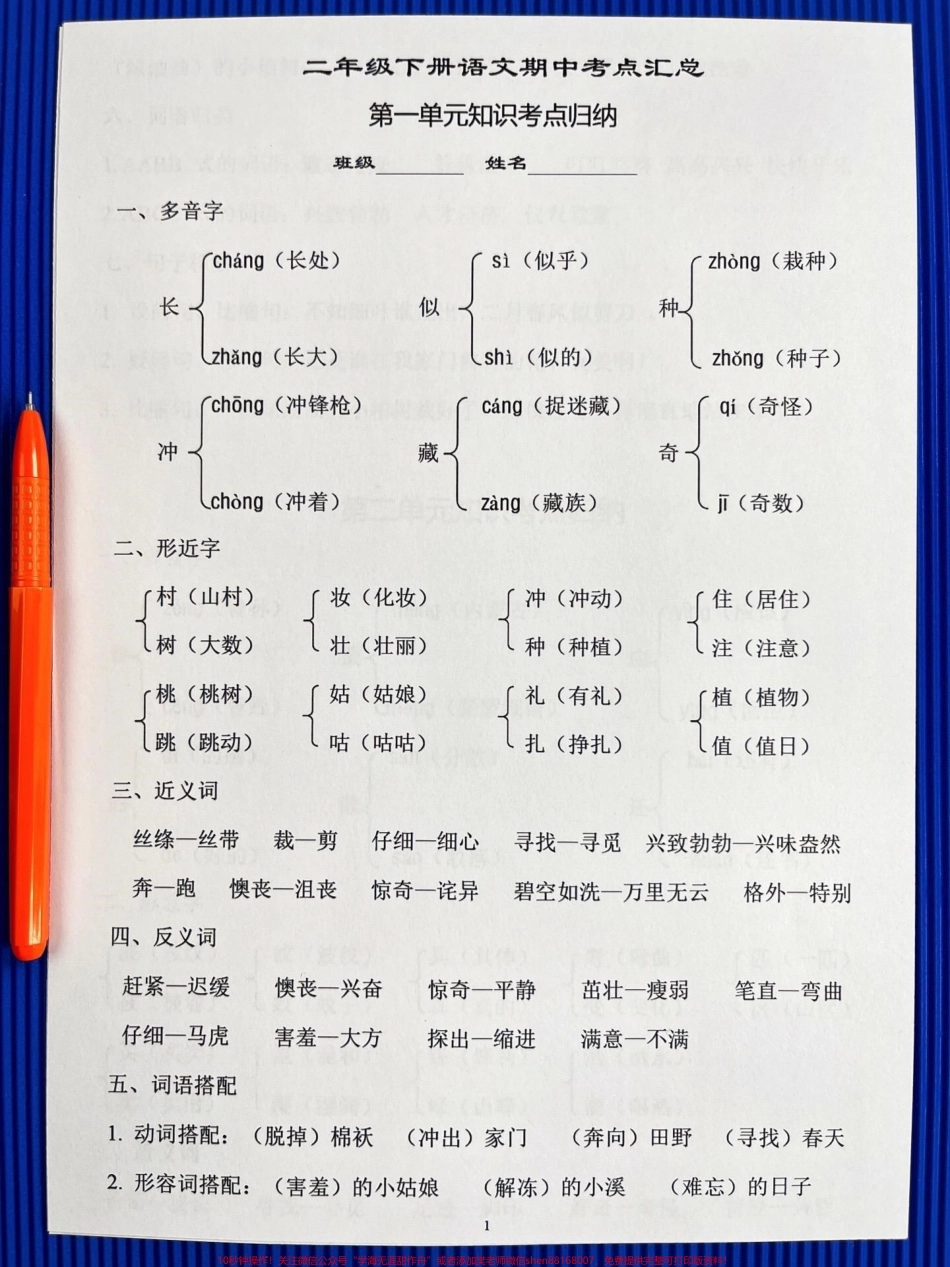 二年级下册语文期中考点汇总
第一单元知识考点归纳
班级________ 姓名________
一、多音字
cháng（长处） sì（似乎） zhòng（栽种）
长 似 种
zhǎng（长大） shì（似的） zhǒng（种子）
chōng（冲锋枪） cáng（捉迷藏） qí（奇怪）
冲 藏 奇
chòng（冲着） zàng（藏族） jī（奇数）
二、形近字
村（山村） 妆（化妆） 冲（冲动） 住（居住）
树（大数） 壮（壮丽） 种（种植） 注（注意）
桃（桃树） 姑（姑娘） 礼（有礼） 植（植物）
跳（跳动） 咕（咕咕） 扎（挣扎） 值（值日）
三、近义词
丝绦—丝带 裁—剪 仔细—细心 寻找—寻觅 兴致勃勃—兴味盎然
奔—跑 懊丧—沮丧 惊奇—诧异 碧空如洗—万里无云 格外—特别
四、反义词
赶紧—迟缓 懊丧—兴奋 惊奇—平静 茁壮—瘦弱 笔直—弯曲
仔细—马虎 害羞—大方 探出—缩进 满意—不满
五、词语搭配
1. 动词搭配：（脱掉）棉袄 （冲出）家门 （奔向）田野 （寻找）春天
2. 形容词搭配：（害羞）的小姑娘 （解冻）的小溪 （难忘）的日子
1